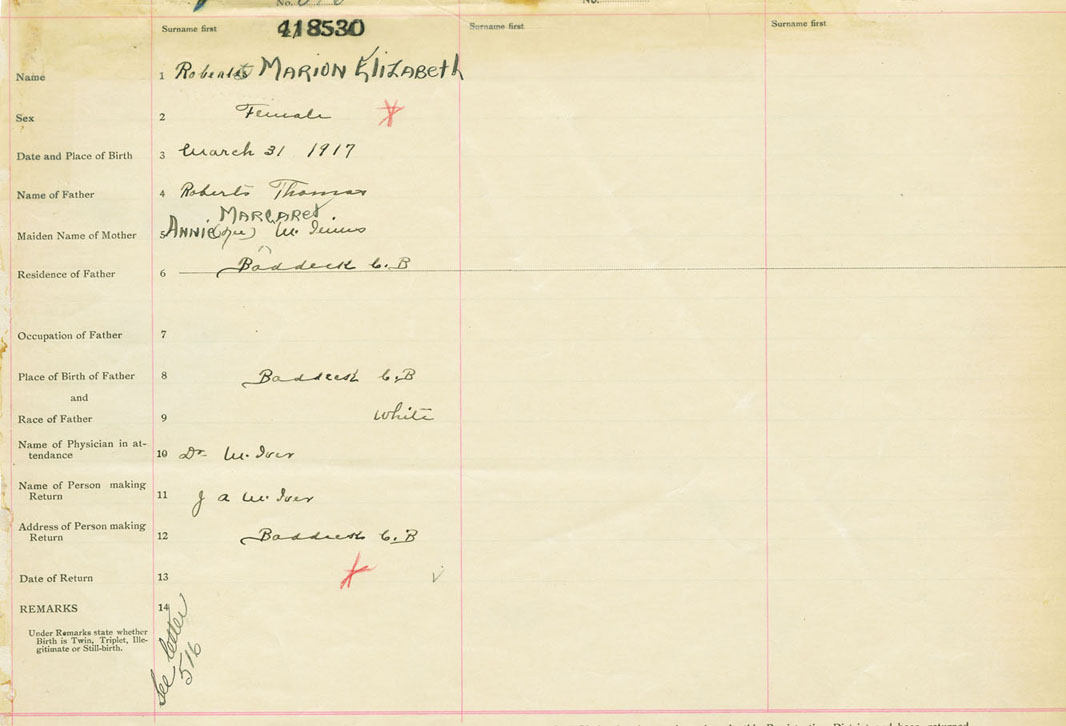 No.
No.
418530
Surname first
Surname first
Surname first
Name 1 Roberts MARION ElIZABETh
Sex 2 Female
Date and Place of Birth 3 March 31 1917
Name of Father 4 Roberts Thomas
MARGARET
Maiden Name of Mother 5 ANNIE (nee) Mc Innis
Residence of Father 6 Baddeck C.B
Occupation of Father 7
Place of Birth of Father 8 Baddeck C.B
and
Race of Father 9 White
Name of Physician in at-
tendance 10 Dr McIver
Name of Person making
Return 11 J a McIver
Address of Person making
Return 12 Baddeck C.B
Date of Return 13
REMARKS 14
Under Remarks state whether
Birth is Twin, Triplet, Ille-
gitimate or Still-birth.
See letter
516